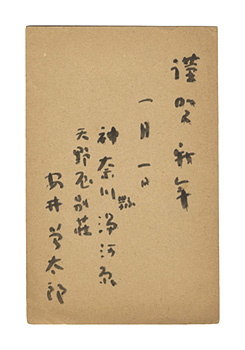 謹賀新年
一月一日
神奈川縣湯河原
天野屋別荘
安井曾太郎